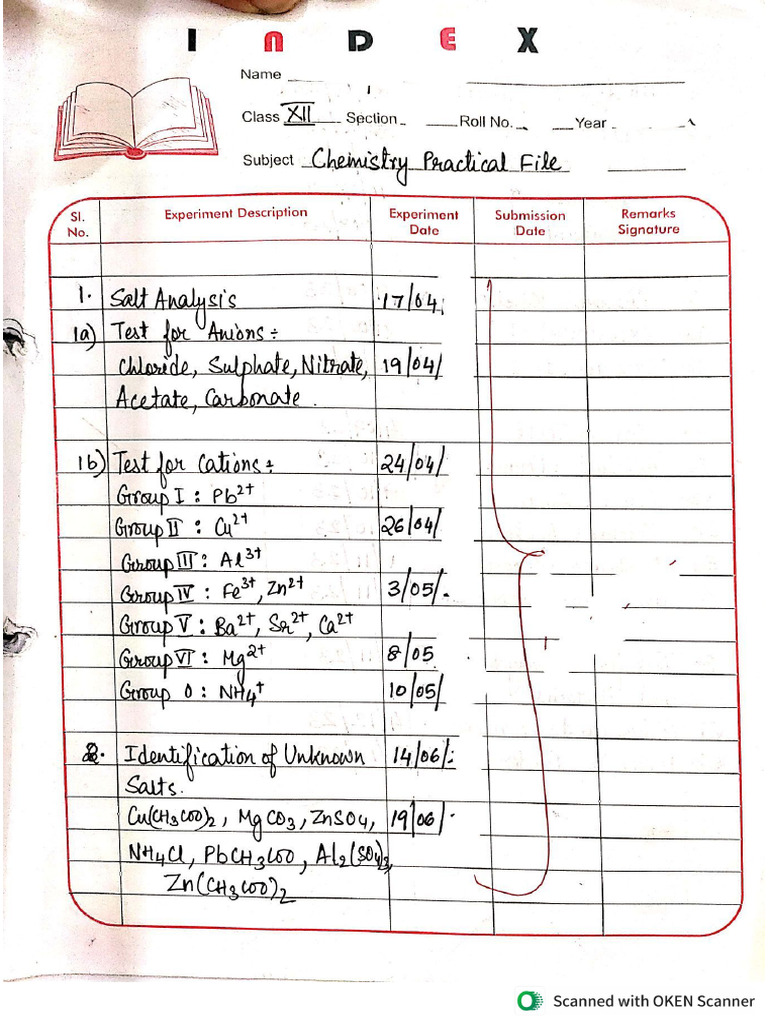 INDEX
Name
Class XII Section Roll No. Year
Subject Chemistry Practical File
Sl. No. Experiment Description Experiment Date Submission Date Remarks Signature
1. Salt Analysis 17/04
1a) Test for Anions:
Chloride, Sulphate, Nitrate, 19/04/
Acetate, Carbonate.
1b) Test for Cations: 24/04/
Group I : Pb²⁺
Group II : Cu²⁺ 26/04/
Group III : Al³⁺
Group IV : Fe³⁺, Zn²⁺ 3/05/
Group V : Ba²⁺, Sr²⁺, Ca²⁺
Group VI : Mg²⁺ 8/05
Group 0 : NH₄⁺ 10/05/
2. Identification of Unknown 14/06/
Salts.
Cu(CH₃COO)₂, MgCO₃, ZnSO₄, 19/06/
NH₄Cl, PbCH₃COO, Al₂(SO₄)₃,
Zn(CH₃COO)₂
Scanned with OKEN Scanner